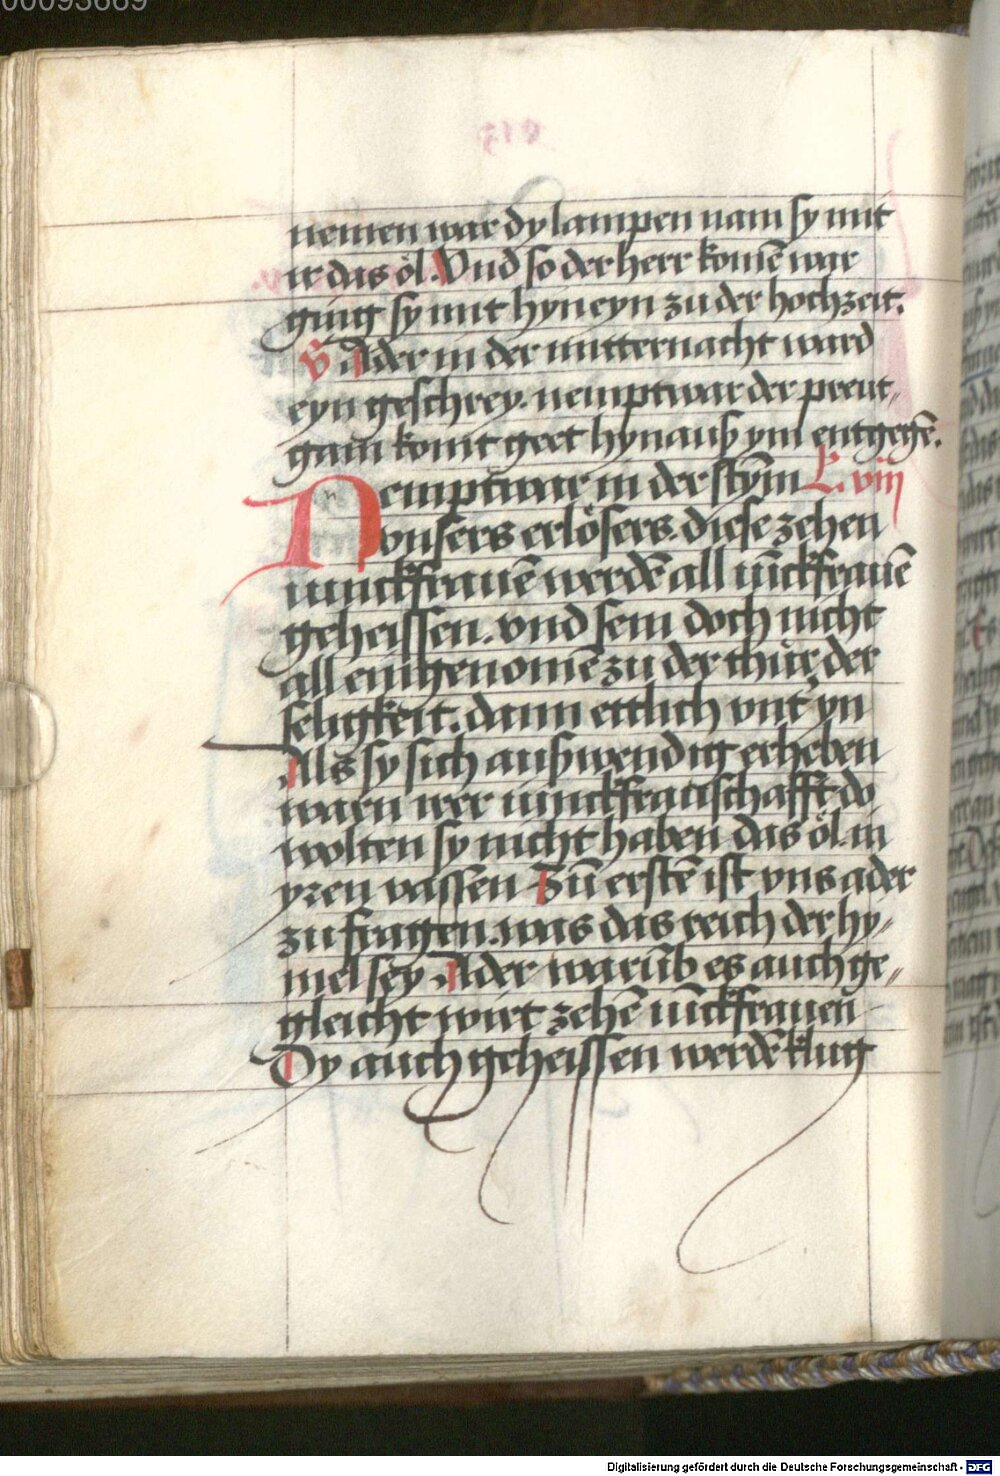 00093669
nemen war dy lampen nam sy mit
ir das öl. Vnd so der herr komē war
ging sy mit hyneyn zu der hochzeit.
V Ader in der mitternacht ward
eyn geschrey. nemptwar der preut,
gam komt geet hynauß ym entgegē.
Nemptwar in der stym̄ L. viij
vnsers erlösers. diese zehen
iunckfrauē werdē all iūckfrauē
geheissen. vnd sein doch nicht
all eingenomē zu der thür der
seligkeit. dann ettlich vnt' yn
Als sy sich außwendig erheben
waren irer iunckfrauschafft do
wolten sy nicht haben das öl in
yren vassen Zū erstē ist vns ader
zu fragen. was das reich der hy,,
mel sey Ader warūb es auch ge,,
gleicht wirt zehē iūckfrauen
Dy auch geheissen werdē klug
Digitalisierung gefördert durch die Deutsche Forschungsgemeinschaft - DFG